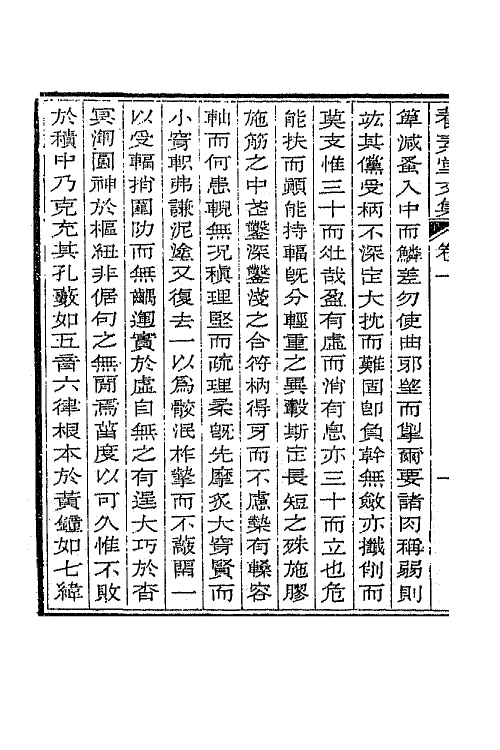 卷一
一
箄減蚤入中而鱗差勿使曲邪望而掣爾要諸肉稱弱則
竑其儻受柄不深定大抌而難固卽負幹無斂亦攕削而
莫支惟三十而灶哉盈有虛而消有息亦三十而立也危
能扶而顚能持輻旣分輕重之異轂斯定長短之殊施膠
施筋之中葘鑿深鑿淺之合符柄得牙而不慮槷有轑容
軸而何患輗無况稹理堅而疏理柔旣先摩炙大穿賢而
小穿軹弗謙泥塗又復去一以爲骹泯柞摯而不敲閒一
以受輻捎圍阞而無齵運實於虛自無之有逞大巧於杳
冥溯圓神於樞紐非倨句之無閒焉葘度以可久惟不敗
於積中乃克充其孔藪如五音六律根本於黃鍾如七緯